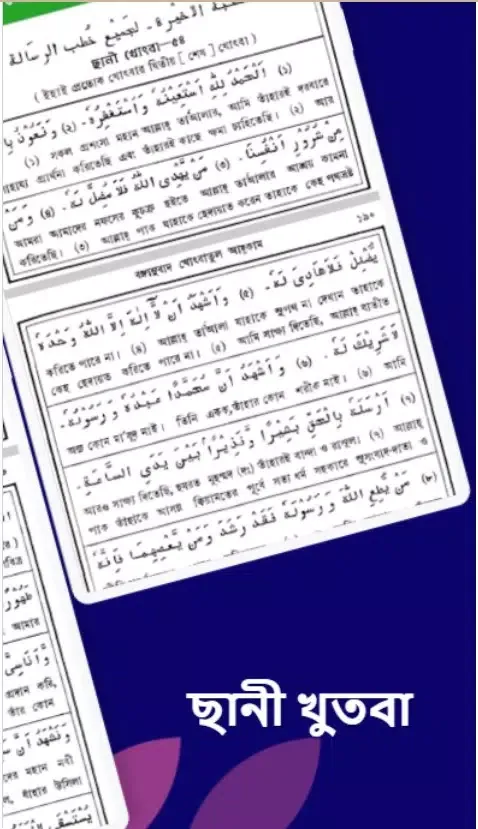 خطبة الأخيرة ـ لجميع خطب الرسالة
ছানী খোৎবা—৫৪
( ইহাই প্রত্যেক খোৎবার দ্বিতীয় [ শেষ ] খোৎবা )
(১) اَلْحَمْدُ لِلّٰهِ اَسْتَعِيْنُهٗ وَاَسْتَغْفِرُهٗ ـ (২) وَنَعُوْذُ بِا
(১) সকল প্রশংসা মহান আল্লাহ্ তা'আলার, আমি তাঁহারই দরবারে
সাহায্য প্রার্থনা করিতেছি এবং তাঁহারই কাছে ক্ষমা চাহিতেছি। (২) আর
مِنْ شُرُوْرِ اَنْفُسِنَا ـ (৩) مَنْ يَّهْدِى اللّٰهُ فَلَا مُضِلَّ لَهٗ ـ (৪) وَمَنْ
আমরা আমাদের নফসের কুচক্র হইতে আল্লাহ্ তা'আলার আশ্রয় কামনা
করিতেছি। (৩) আল্লাহ্ পাক যাহাকে হেদায়ত করেন তাহাকে কেহ পথভ্রষ্ট
১৯০
বঙ্গানুবাদ খোৎবাতুল আহ্‌কাম
يُّضْلِلْ فَلَاهَادِىَ لَهٗ ـ (৫) وَاَشْهَدُ اَنْ لَّا اِلٰهَ اِلَّا اللّٰهُ وَحْدَهٗ
করিতে পারে না। (৪) আল্লাহ্ তা'আলা যাহাকে সুপথ না দেখান তাহাকে
কেহ হেদায়ত করিতে পারে না। (৫) আমি সাক্ষ্য দিতেছি, আল্লাহ্ ব্যতীত
لَاشَرِيْكَ لَهٗ ـ (৬) وَاَشْهَدُ اَنَّ مُحَمَّدًا عَبْدُهٗ وَرَسُوْلُهٗ ـ
অন্য কোন মা'বুদ নাই। তিনি একক, তাঁহার কোন শরীক নাই। (৬) আমি
(৭) اَرْسَلَهٗ بِالْحَقِّ بَشِيْرًا وَّنَذِيْرًا بَيْنَ يَدَىِ السَّاعَةِ ـ
আরও সাক্ষ্য দিতেছি, হযরত মুহম্মদ (দঃ) তাঁহারই বান্দা ও রাসূল। (৭) আল্লাহ্
পাক তাঁহাকে আসন্ন কিয়ামতের পূর্বে সত্য ধর্ম সহকারে সুসংবাদ-দাতা ও
(৮) مَنْ يُّطِعِ اللّٰهَ وَرَسُوْلَهٗ فَقَدْ رَشَدَ وَمَنْ يَّعْصِهِمَا فَاِنَّهٗ
طهور
আমার
وَّاَنَاسِىَّ
প্রদান করি,
তাঁর কোন
وَنَشْهَدُ اَنَّ
মহান নবী
যাঁহার উসিলা
يَسْتَسْقِى
ছানী খুতবা